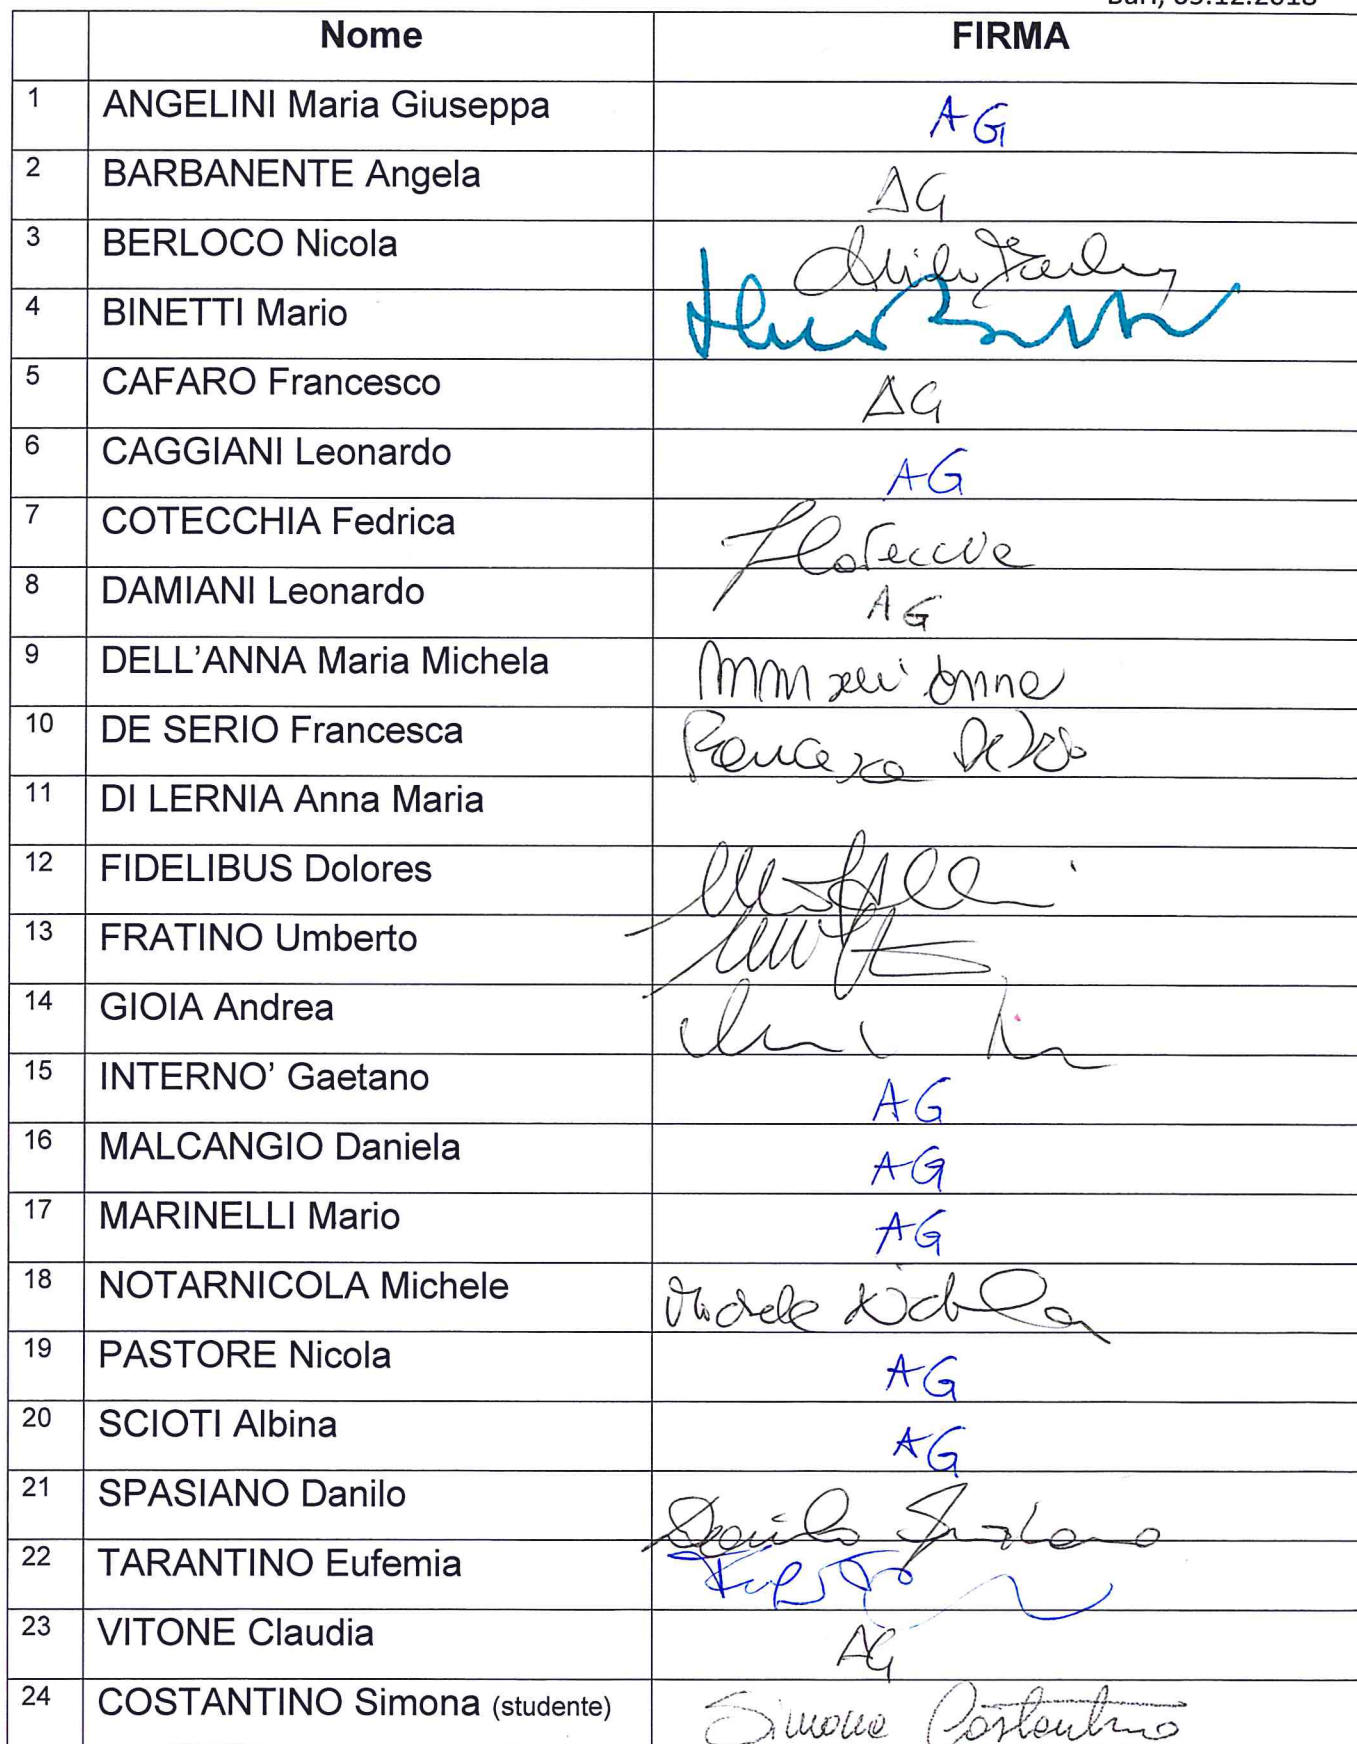 Bari, 05.12.2018
Nome FIRMA
1 ANGELINI Maria Giuseppa AG
2 BARBANENTE Angela AG
3 BERLOCO Nicola
4 BINETTI Mario
5 CAFARO Francesco AG
6 CAGGIANI Leonardo AG
7 COTECCHIA Fedrica
8 DAMIANI Leonardo AG
9 DELL'ANNA Maria Michela
10 DE SERIO Francesca Francesca
11 DI LERNIA Anna Maria
12 FIDELIBUS Dolores
13 FRATINO Umberto
14 GIOIA Andrea
15 INTERNO' Gaetano AG
16 MALCANGIO Daniela AG
17 MARINELLI Mario AG
18 NOTARNICOLA Michele Michele
19 PASTORE Nicola AG
20 SCIOTI Albina AG
21 SPASIANO Danilo Danilo Spasiano
22 TARANTINO Eufemia
23 VITONE Claudia AG
24 COSTANTINO Simona (studente) Simona Costantino